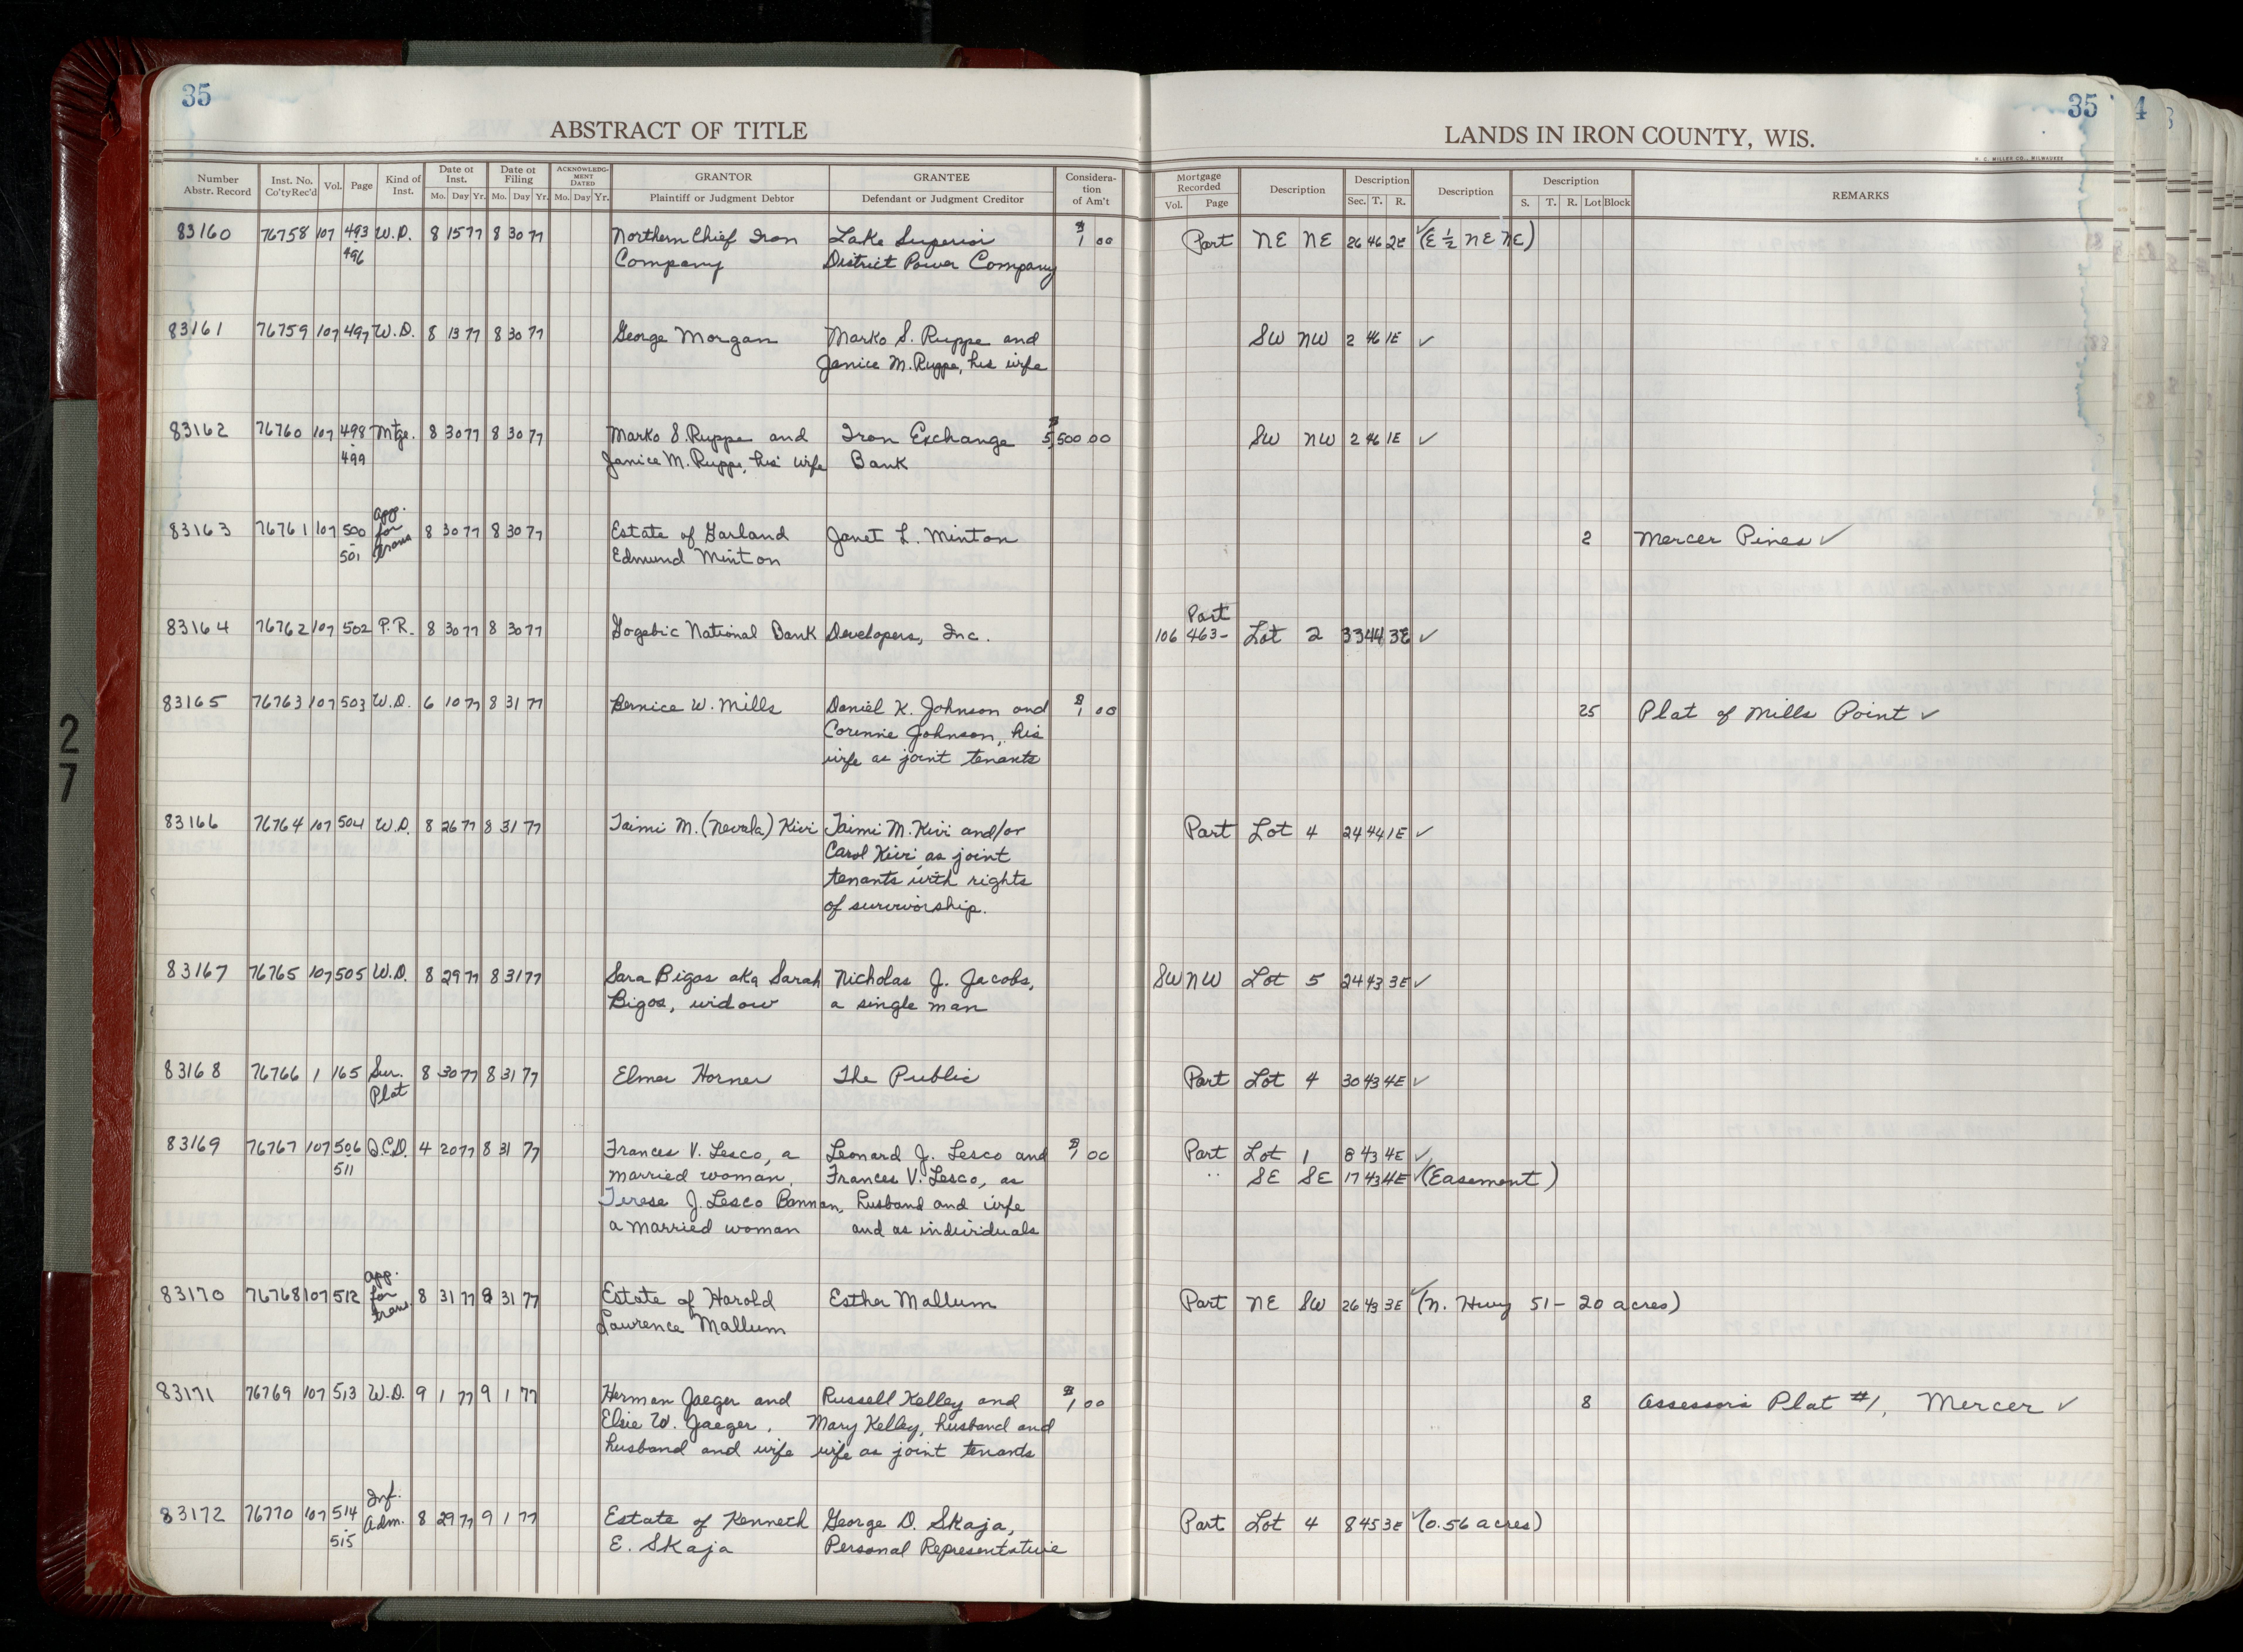 35
ABSTRACT OF TITLE
Number Abstr. Record | Inst. No. Co'ty Rec'd | Vol. | Page | Kind of Inst. | Date of Inst. Mo. Day Yr. | Date of Filing Mo. Day Yr. | ACKNOWLEDG-MENT DATED Mo. Day Yr. | GRANTOR Plaintiff or Judgment Debtor | GRANTEE Defendant or Judgment Creditor | Considera-tion of Am't
35
4
LANDS IN IRON COUNTY, WIS.
H. C. MILLER CO., MILWAUKEE
Mortgage Recorded Vol. Page | Description | Description Sec. T. R. | Description | Description S. T. R. Lot Block | REMARKS
83160 76758 107 493 W.D. 8 15 77 8 30 77 Northern Chief Iron Lake Superior $1 00 Part NE NE 26 46 2E ✓(E ½ NE NE)
- 496 Company District Power Company
83161 76759 107 497 W.D. 8 13 77 8 30 77 George Morgan Marko S. Ruppe and SW NW 2 46 1E ✓
Janice M. Ruppe, his wife
83162 76760 107 498 Mtge. 8 30 77 8 30 77 Marko S. Ruppe and Iron Exchange $5,500 00 SW NW 2 46 1E ✓
- 499 Janice M. Ruppe, his wife Bank
83163 76761 107 500 app. for trans 8 30 77 8 30 77 Estate of Garland Janet L. Minton 2 Mercer Pines ✓
- 501 Edmund Minton
Part
83164 76762 107 502 P.R. 8 30 77 8 30 77 Gogebic National Bank Developers, Inc. 106 463- Lot 2 33 44 3E ✓
83165 76763 107 503 W.D. 6 10 77 8 31 77 Bernice W. Mills Daniel K. Johnson and $1 00 25 Plat of Mills Point ✓
Corinne Johnson, his
wife as joint tenants
83166 76764 107 504 W.D. 8 26 77 8 31 77 Taimi M. (Nevala) Kivi Taimi M. Kivi and/or Part Lot 4 24 44 1E ✓
Carol Kivi, as joint
tenants with rights
of survivorship.
83167 76765 107 505 W.D. 8 29 77 8 31 77 Sara Bigos aka Sarah Nicholas J. Jacobs, SW NW Lot 5 24 43 3E ✓
Bigos, widow a single man
83168 76766 1 165 Sur. 8 30 77 8 31 77 Elmer Horner The Public Part Lot 4 30 43 4E ✓
Plat
83169 76767 107 506 Q.C.D. 4 20 77 8 31 77 Frances V. Lesco, a Leonard J. Lesco and $1 00 Part Lot 1 8 43 4E ✓
511 married woman, Frances V. Lesco, as " SE SE 17 43 4E ✓(Easement)
Terese J. Lesco Bannan, husband and wife
a married woman and as individuals
83170 76768 107 512 app. for trans. 8 31 77 8 31 77 Estate of Harold Esther Mallum Part NE SW 26 43 3E ✓(N. Hwy 51 - 20 acres)
Lawrence Mallum
83171 76769 107 513 W.D. 9 1 77 9 1 77 Herman Jaeger and Russell Kelley and $1 00 8 Assessors Plat #1, Mercer ✓
Elsie W. Jaeger, Mary Kelley, husband and
husband and wife wife as joint tenants
83172 76770 107 514 Inf. Adm. 8 29 77 9 1 77 Estate of Kenneth George D. Skaja, Part Lot 4 8 45 3E ✓(0.56 acres)
- 515 E. Skaja Personal Representative
27